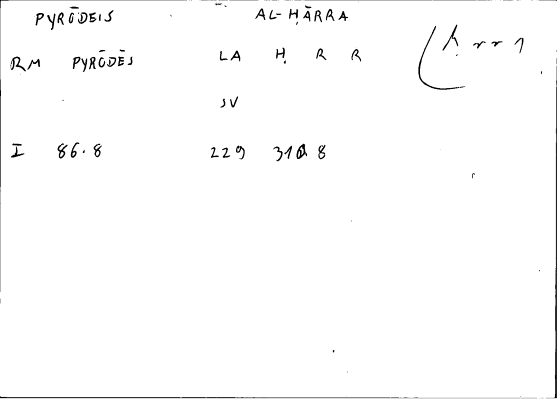 PYRŌDEIS AL-ḤĀRRA
RM PYRŌDĒS LA Ḥ R R
SV
I 86.8 229 310 8